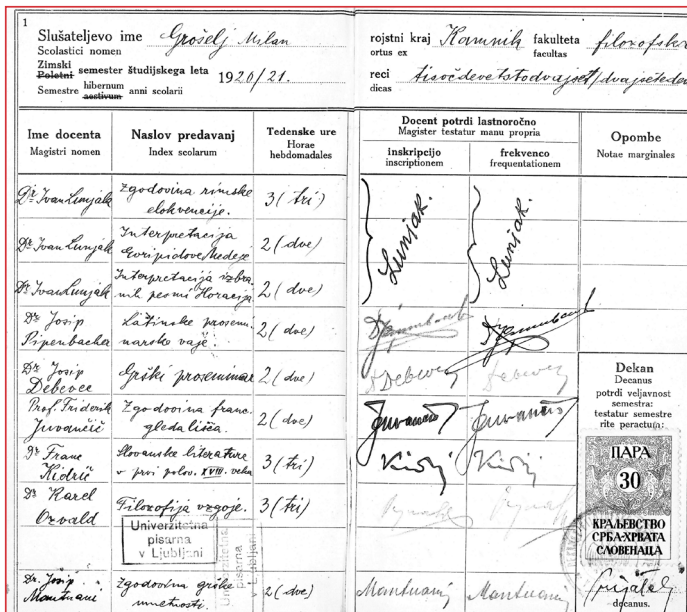 1
Slušateljevo ime Grošelj Milan
Scolastici nomen
Zimski
Poletni semester študijskega leta 1920/21.
Semestre hibernum aestivum anni scolarii
rojstni kraj Kamnik fakulteta filozofska
ortus ex facultas
reci tisočdevetstodvajset/dvajseteden
dicas
Ime docenta
Magistri nomen
Naslov predavanj
Index scolarum
Tedenske ure
Horae
hebdomadales
Docent potrdi lastnoročno
Magister testatur manu propria
inskripcijo
inscriptionem
frekvenco
frequentationem
Opombe
Notae marginales
Dr. Ivan Lunjak Zgodovina rimske elokvencije. 3 (tri) Lunjak. Lunjak.
Dr. Ivan Lunjak Interpretacija Evripidove Medeje 2 (dve)
Dr. Ivan Lunjak Interpretacija izbranih pesmi Horacija 2 (dve)
Dr. Josip Pipenbacher Latinske proseminarske vaje. 2 (dve)
Dr. Josip Debevec Grški proseminar 2 (dve) Debevec Debevec
Prof. Friderik Juvančič Zgodovina franc. gledališča. 2 (dve) Juvančič Juvančič
Dr. Franc Kidrič Slovanske literature v prvi polov. XVIII. veka 3 (tri) Kidrič Kidrič
Dr. Karel Ozvald Filozofija vzgoje. 3 (tri)
Dr. Josip Mantuani Zgodovina grške umetnosti. 2 (dve) Mantuani Mantuani
Univerzitetna
pisarna
v Ljubljani
Univerzitetna
pisarna
v Ljubljani
Dekan
Decanus
potrdi veljavnost
semestra:
testatur semestre
rite peractum:
ПАРА
30
КРАЉЕВСТВО
СРБА·ХРВАТА
СЛОВЕНАЦА
decanus.